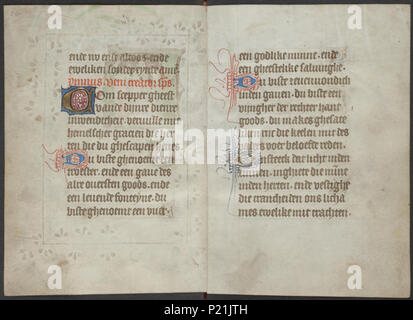 ende nv ende altoos · ende
eweliken sonder eynde ame
ymnus. Veni creator sps.
Com scepper gheest
vande dijnre dienre
inwendicheit veruulle mit
hemelscher gracien die her
ten die du ghescapen
Du biste ghenoemt een
troester. ende een gaue des
alre ouersten goods. ende
een leuende fonteyne. du
biste ghenoemt een vuer.
een godlike minne. ende
een gheestelike saluinghe.
Du biste seuenvondich
inden gauen. du biste een
vijngher der rechter hant
goods. du makes
die keelen mit des
voer beloefde reden.
Ontsteeck dat licht inden
sinnen. inghiete die minne
inden herten. ende vestighe
die crancheiden ons licha
mes ewelike mit crachten.
alamy
P21JTH